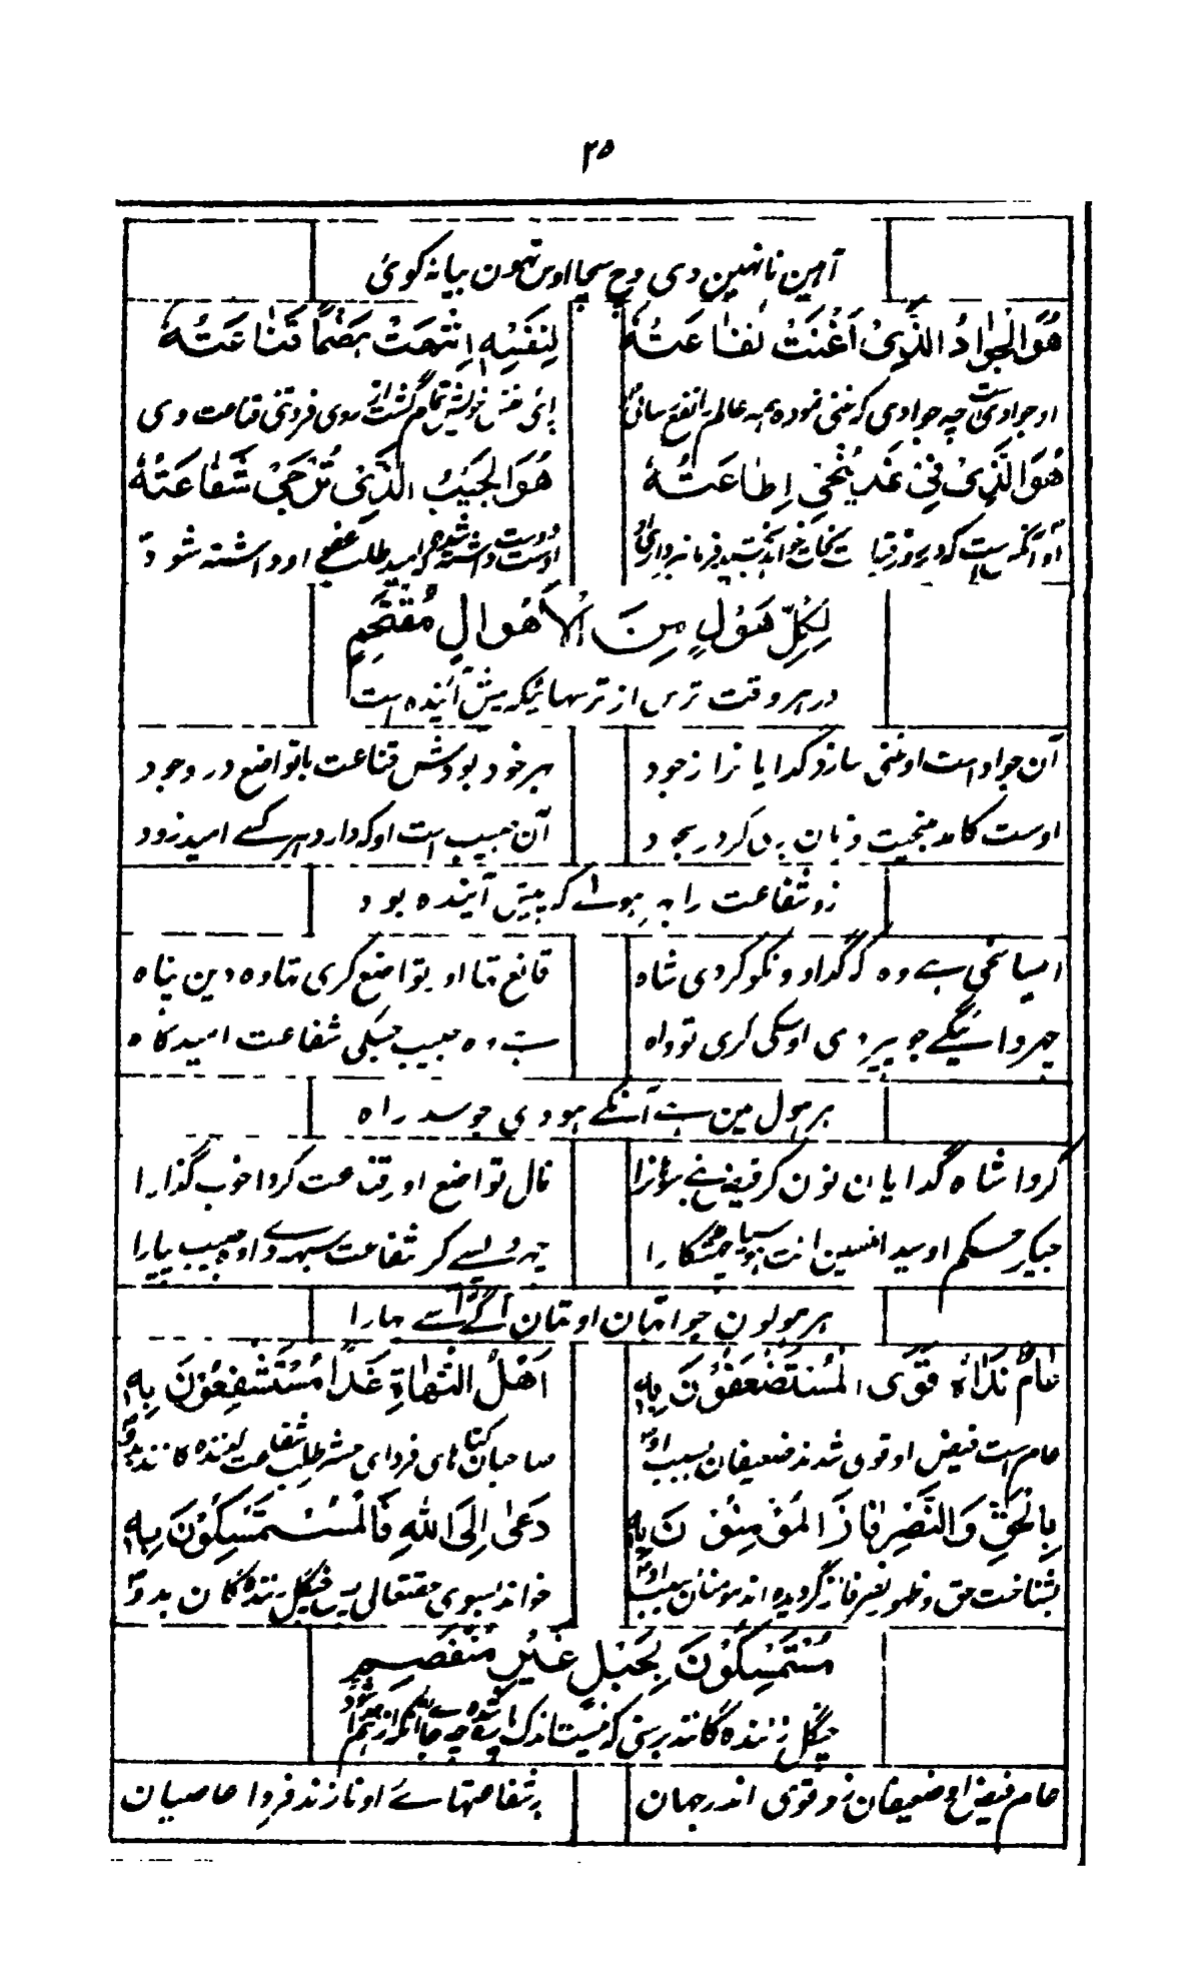 ۲۵
آمین نا نہین دی وچ سچا اوس تہون بیا نہ کوئی
هُوَ الْجَوَادُ الَّذِیْ اَغْنَتْ نَفَاعَتُهٗ لِنَفْسِهٖ انْتَهَتْ هَضْمًا قَنَاعَتُهٗ
او جوادیست چه جوادی که غنی نموده همه عالم را نفع رسانی برای نفس خویش تمام گشت از روی فروتنی قناعت وی
هُوَ الَّذِیْ فِیْ غَدٍ یُنْجِیْ اِطَاعَتُهٗ هُوَ الْحَبِیْبُ الَّذِیْ تُرْجٰی شَفَاعَتُهٗ
او آنکسیست که در روز قیامت نجات خواهد بخشید فرمانبرداری او اوست دوست که امید طلب عفو او داشته شود
لِکُلِّ هَوْلٍ مِنَ الْاَهْوَالِ مُقْتَحِمٖ
در هر وقت ترس از ترسهائیکه پیش آینده است
آن جواد است او غنی سازد گدایا نرا ز جود بهر خود بودش قناعت با تواضع در وجود
اوست کامد منجیت فرمان بری کردر بجود آن حبیب است او که دارد هر کسے امید زود
زو شفاعت را به هولے که پیش آینده بود
ایسا سخی ہے وہ کہ گدا و نکو کردی شاہ قانع تہا او بتواضع کری تہا وہ دین پناہ
چہروا ئیگے جو پیردی اوسکی کری تو واہ ہے وہ حبیب جسکی شفاعت امید گاہ
ہر ہول مین ہے آنکے ہووی جو سد راہ
کردا شاہ گدایان نون کر فیض نے بہارا نال تواضع اور قناعت کردا خوب گذارا
جیکر حکم اوسید انسین انت ہوسیا چھٹکارا چہڑیسے کر شفاعت سہردے اوہ حبیب پیارا
ہر ہولون جو اتہان اوتہان آگے آسے بہارا
عَامٌ نَدَاهُ قَوَی الْمُسْتَضْعَفُوْنَ بِهٖ اَهْلُ النُّهَاةِ غَدًا مُسْتَشْفِعُوْنَ بِهٖ
عام است فیض او قوی شدند ضعیفان بسبب او صاحبان گناهای فردای حشر طلب شفاعت کننده گانند بدو
بِالْحَقِّ وَالنَّصْرِ فَازَ الْمُؤْمِنُوْنَ بِهٖ دَعٰی اِلَی اللهِ فَالْمُسْتَمْسِکُوْنَ بِهٖ
بشناخت حق و ظهور نصر فائز گردیده اند مومنان بسبب او خواند بسوی حقتعالی پس چنگل زننده گان بدو
مُسْتَمْسِکُوْنَ بِحَبْلٍ غَیْرِ مُنْفَصِمٖ
چنگل زننده گانند برسنی که نیست اندک
عام فیض او ضعیفان زو قوی اندر جهان بر شفاعتهاے او نازند فردا عاصیان